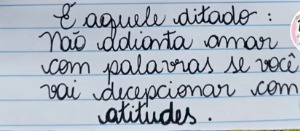 É aquele ditado :
não adianta amar
com palavras se você
vai decepcionar com
atitudes .